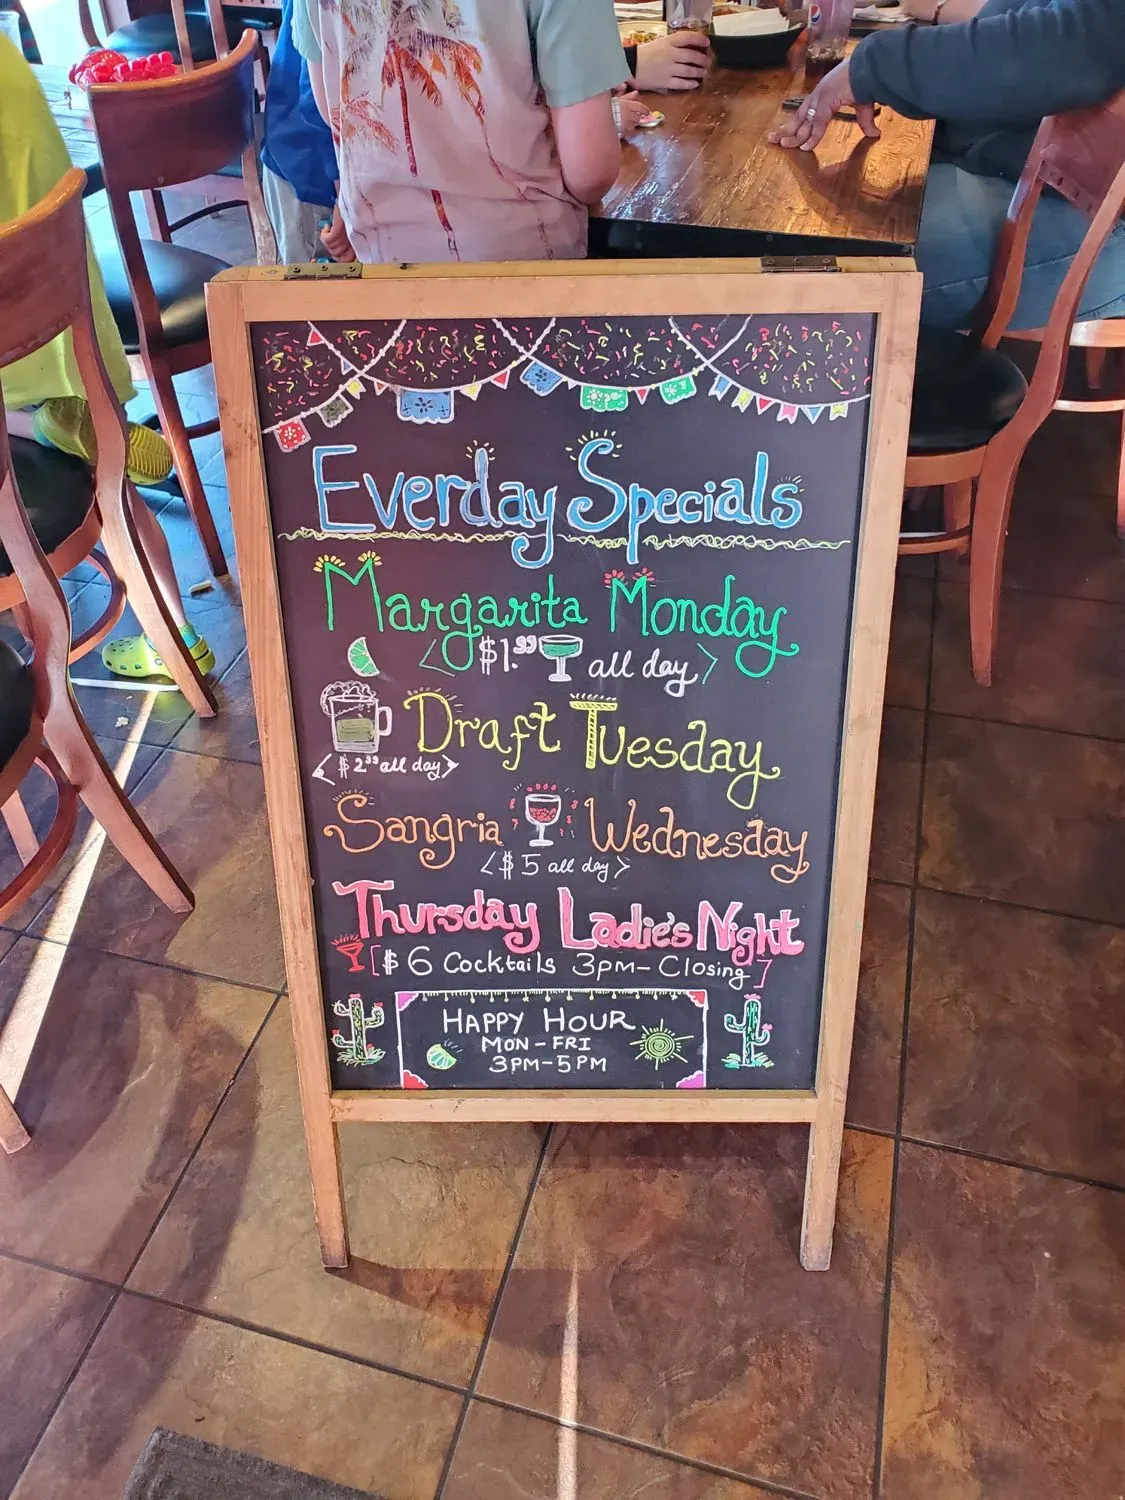 Everday Specials
Margarita Monday
<$1.99 all day>
Draft Tuesday
<$2.99 all day>
Sangria Wednesday
<$5 all day>
Thursday Ladie's Night
[$6 Cocktails 3pm-Closing]
HAPPY HOUR
MON-FRI
3PM-5PM